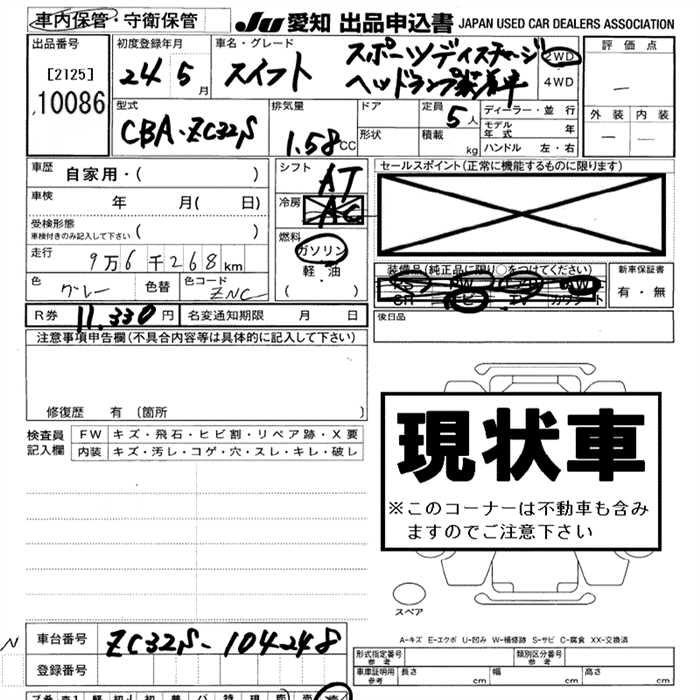 車内保管・守衛保管
JU 愛知 出品申込書 JAPAN USED CAR DEALERS ASSOCIATION
出品番号
[2125]
10086
初度登録年月
24 5 月
車名・グレード
スイフト スポーツディスチャージ
ヘッドランプ装着車
2WD
4WD
評価点
外装 内装
型式
CBA-ZC32S
排気量
1.58 CC
ドア
形状
定員 5 人
積載 kg
ディーラー・並行
モデル年式 年
ハンドル 左・右
車歴 自家用・( )
車検 年 月( 日)
受検形態
車検付きのみ記入して下さい ( )
走行 9万6千268km
色 グレー 色替 色コード ZNC
シフト AT
冷房 AC
燃料 ガソリン
軽・油
( )
セールスポイント(正常に機能するものに限ります)
装備品(純正品に限り○をつけてください)
新車保証書
有・無
後日品
R券 11.330 円 名変通知期限 月 日
注意事項申告欄(不具合内容等は具体的に記入して下さい)
修復歴 有 〔箇所
検査員
記入欄
FW キズ・飛石・ヒビ割・リペア跡・X要
内装 キズ・汚レ・コゲ・穴・スレ・キレ・破レ
現状車
※このコーナーは不動車も含み
ますのでご注意下さい
スペア
A-キズ E-エクボ U-凹み W-補修跡 S-サビ C-腐食 XX-交換済
N
車台番号 ZC32S-104248
登録番号
形式指定番号
参考
類別区分番号
参考
車庫証明用
参考
長さ cm 幅 cm 高さ cm